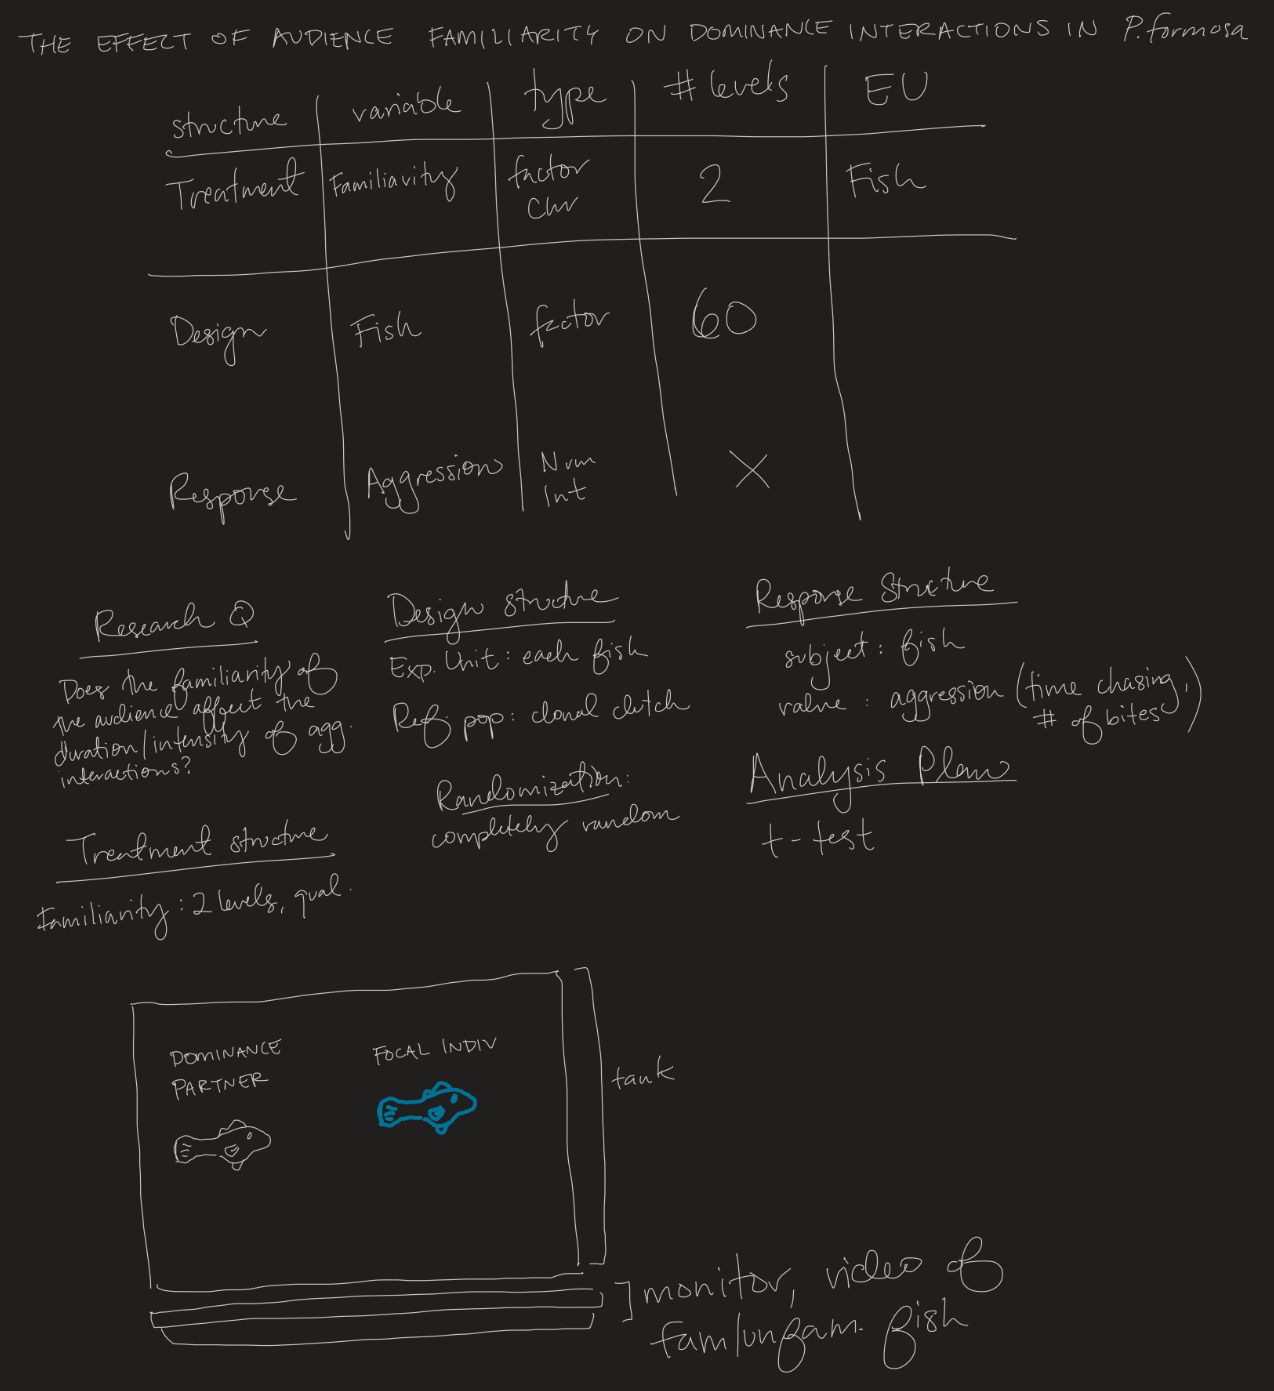 THE EFFECT OF AUDIENCE FAMILIARITY ON DOMINANCE INTERACTIONS IN P. formosa
structure variable type # levels EU
Treatment Familiarity factor 2 Fish
chr
Design Fish factor 60
Response Aggression Num X
Int
Research Q
Does the familiarity of
the audience affect the
duration/intensity of agg.
interactions?
Treatment structure
Familiarity: 2 levels, qual.
Design structure
Exp. Unit: each fish
Ref pop: clonal clutch
Randomization:
completely random
Response Structure
subject: fish
value: aggression (time chasing,
# of bites)
Analysis Plan
t-test
DOMINANCE
PARTNER
FOCAL INDIV
tank
monitor, video of
fam/unfam. fish